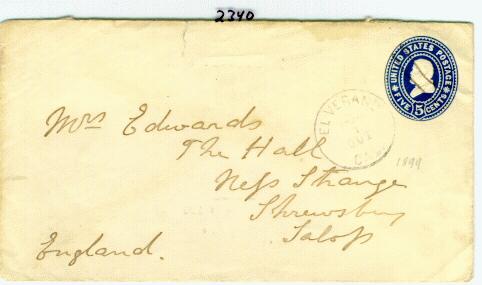 2340
UNITED STATES POSTAGE
FIVE 5 CENTS
EL VERANO
1
OCT
CAL
1899
Mrs Edwards
The Hall
Ness Strange
Shrewsbury
Salop
England.